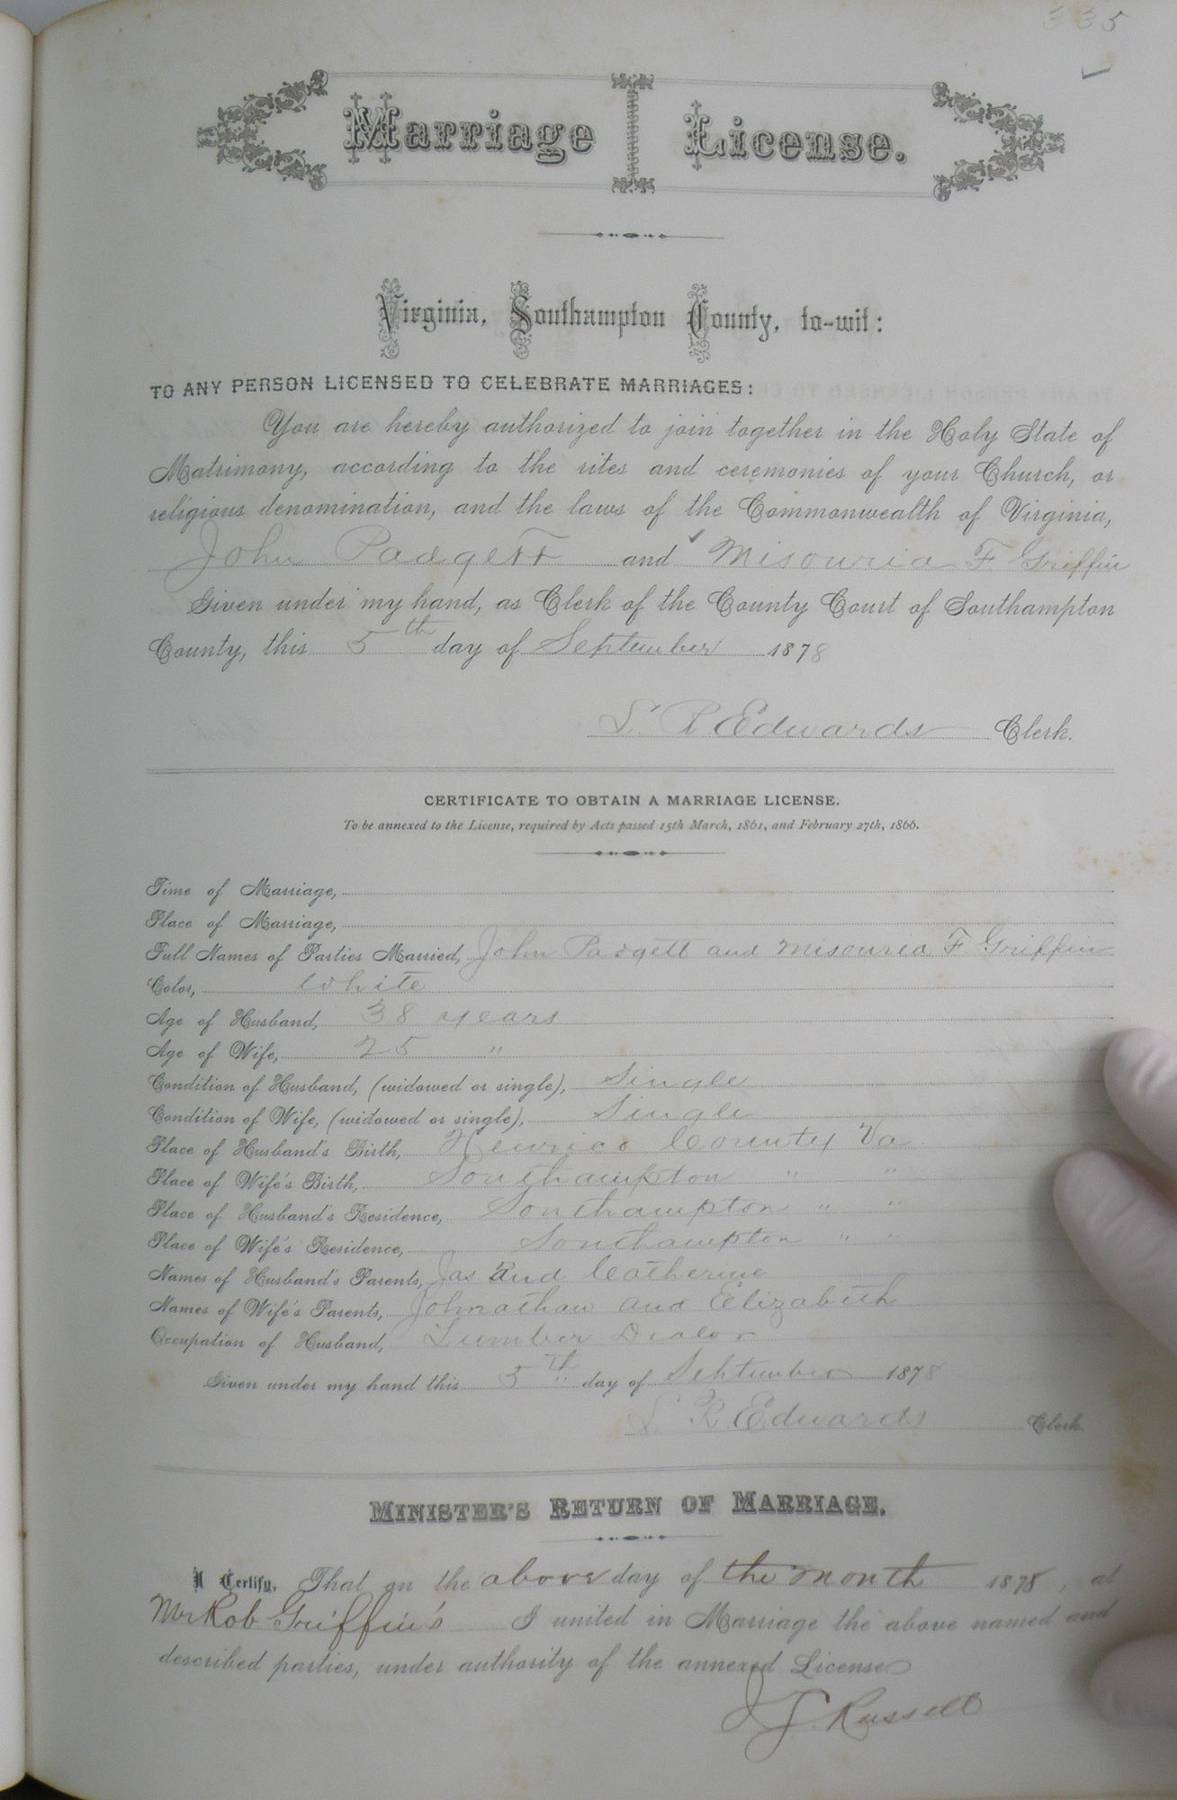 335
Marriage License.
Virginia, Southampton County, to-wit:
TO ANY PERSON LICENSED TO CELEBRATE MARRIAGES:
You are hereby authorized to join together in the Holy State of
Matrimony, according to the rites and ceremonies of your Church, or
religious denomination, and the laws of the Commonwealth of Virginia,
John Padgett and Misouria F. Griffin
Given under my hand, as Clerk of the County Court of Southampton
County, this 5th day of September 1878
L. R Edwards Clerk.
CERTIFICATE TO OBTAIN A MARRIAGE LICENSE.
To be annexed to the License, required by Acts passed 15th March, 1861, and February 27th, 1866.
Time of Marriage,
Place of Marriage,
Full Names of Parties Married, John Padgett and Misouria F. Griffin
Color, White
Age of Husband, 38 years
Age of Wife, 25 "
Condition of Husband, (widowed or single), Single
Condition of Wife, (widowed or single), Single
Place of Husband's Birth, Henrico County Va
Place of Wife's Birth, Southampton " "
Place of Husband's Residence, Southampton " "
Place of Wife's Residence, Southampton " "
Names of Husband's Parents, Jas and Catherine
Names of Wife's Parents, Johnathan and Elizabeth
Occupation of Husband, Lumber Dealer
Given under my hand this 5th day of September 1878
L R Edwards Clerk
MINISTER'S RETURN OF MARRIAGE.
I Certify, That on the above day of the month 1878, at
Mr Rob Griffin's I united in Marriage the above named and
described parties, under authority of the annexed License
J. J. Russell